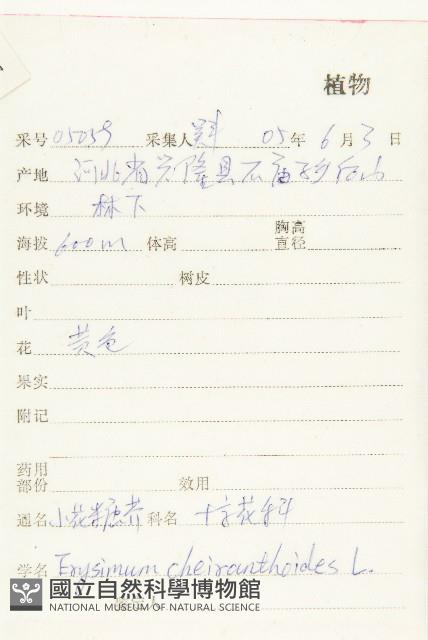 植物
采号 05059 采集人 05年 6月 3日
产地 河北省兴隆县石庙子乡后山
环境 林下
海拔 600m 体高 胸高直径
性状 树皮
叶
花 黄色
果实
附记
药用部份 效用
通名 小花糖芥 科名 十字花科
学名 Erysimum cheiranthoides L.
國立自然科學博物館
NATIONAL MUSEUM OF NATURAL SCIENCE